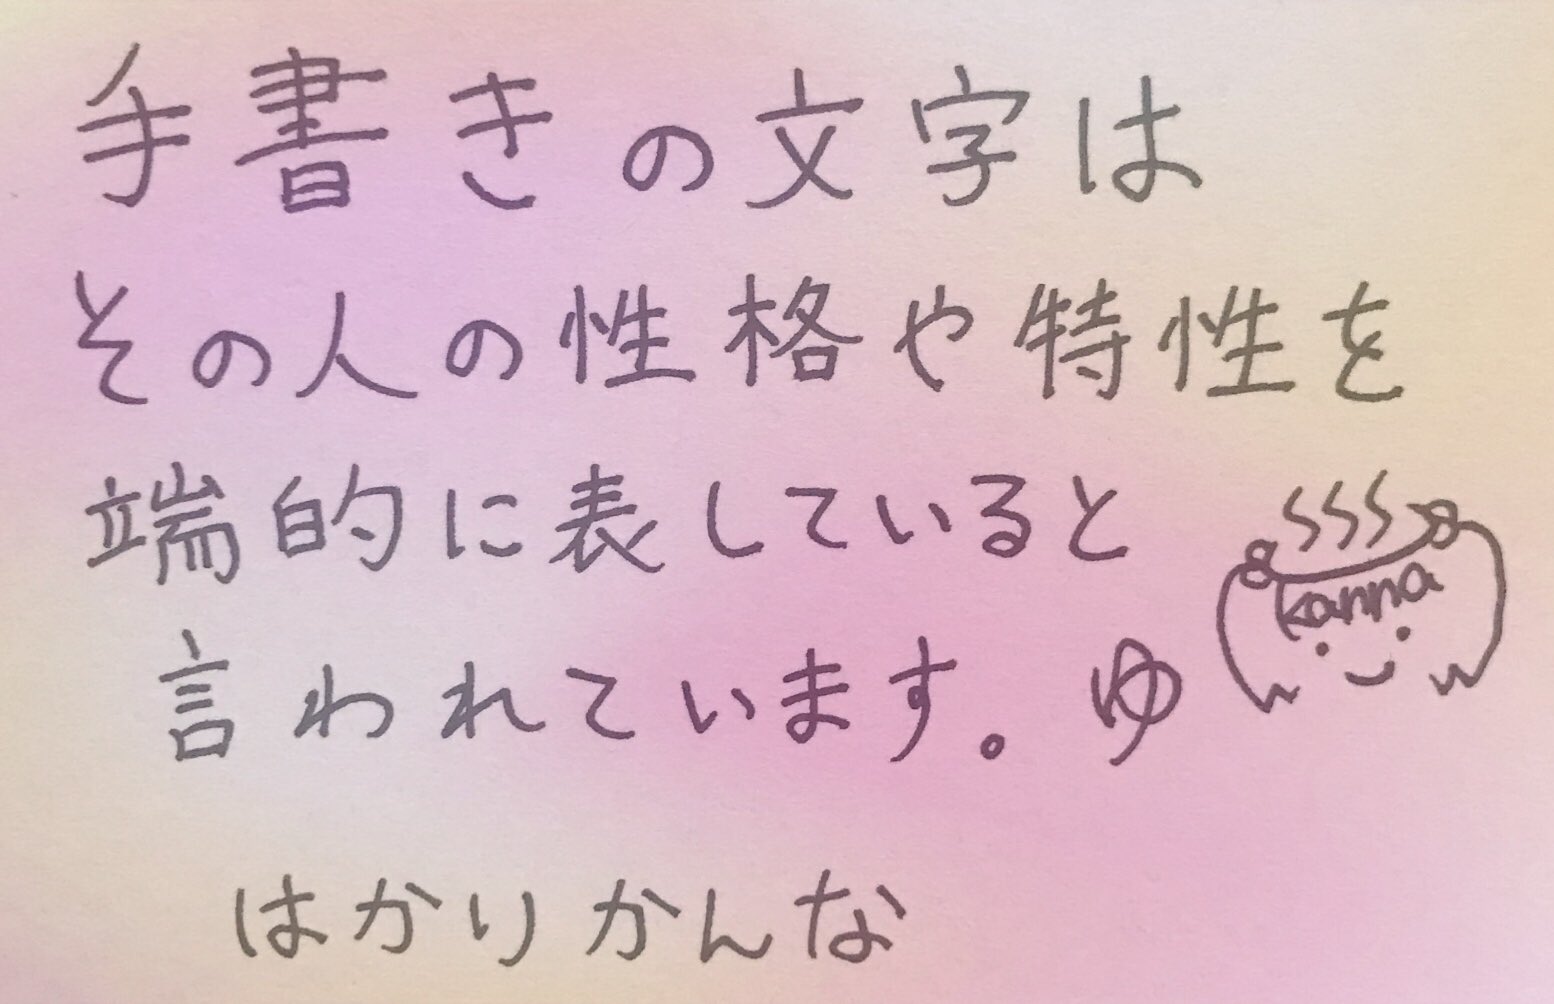 手書きの文字は
その人の性格や特性を
端的に表していると
kanna
言われています。ゆ
はかりかんな